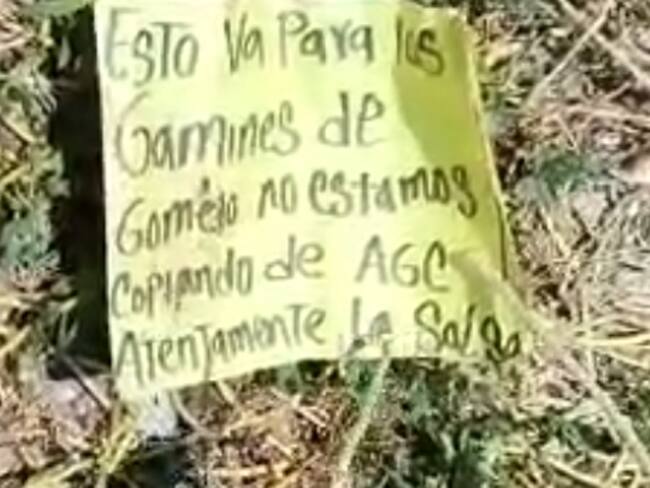 Esto va para los
Gamines de
Gomelo no estamos
Copiando de AGC
Atentamente La